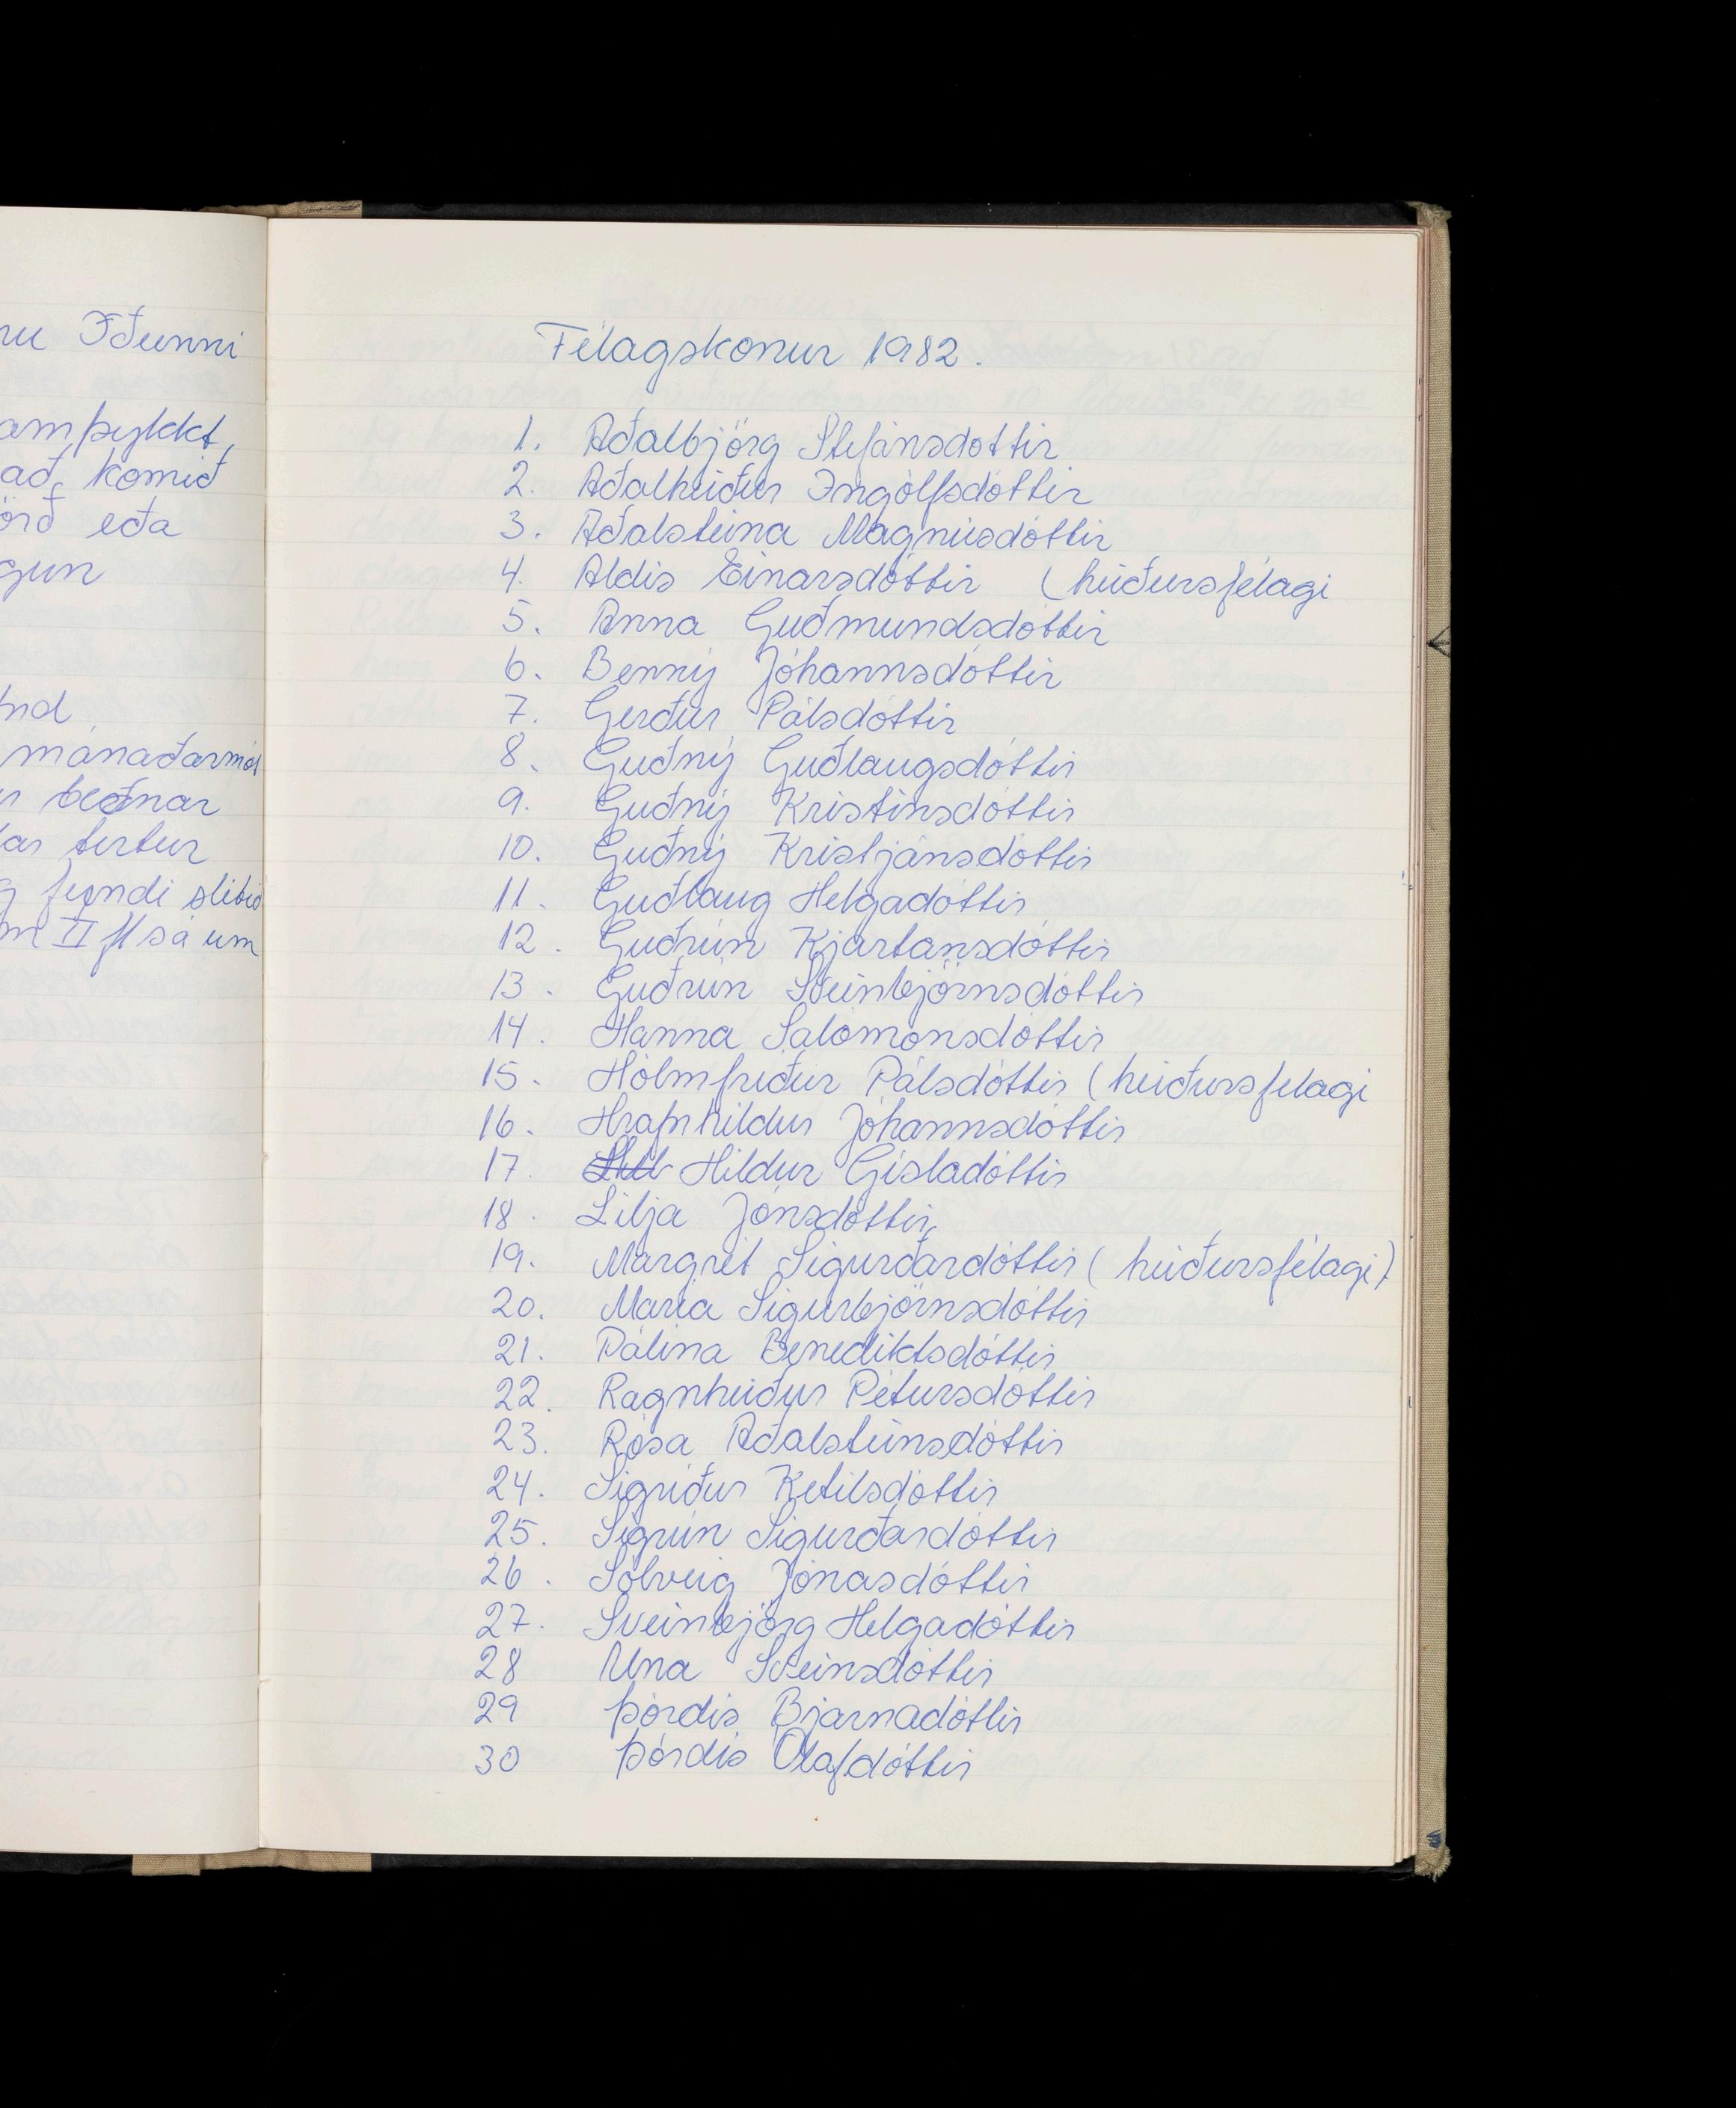 Iðunni
komið
eða
mánaðarmót
beðnar
tertur
fundi slitið
II fl sá um
Félagskonur 1982.
1. Aðalbjörg Stefánsdottir
2. Aðalheiður Ingólfsdóttir
3. Aðalsteina Magnúsdóttir
4. Aldis Einarsdóttir (heiðursfélagi
5. Anna Guðmundsdóttir
6. Benný Jóhannsdóttir
7. Gerður Pálsdóttir
8. Guðný Guðlaugsdóttir
9. Guðný Kristinsdóttir
10. Guðný Kristjánsdóttir
11. Guðlaug Helgadóttir
12. Guðrún Kjartansdóttir
13. Guðrún Sveinbjörnsdóttir
14. Hanna Salómonsdóttir
15. Hólmfriður Pálsdóttir (heiðursfelagi
16. Hrafnhildur Jóhannsdóttir
17. Hildur Gísladóttir
18. Lilja Jónsdóttir
19. Margrét Sigurðardóttir (heiðursfélagi)
20. María Sigurbjörnsdóttir
21. Pálina Benediktsdóttir
22. Ragnheiður Pétursdóttir
23. Rósa Aðalsteinsdóttir
24. Sigriður Ketilsdóttir
25. Sigrún Sigurðardóttir
26. Sólveig Jónasdóttir
27. Sveinbjörg Helgadóttir
28 Una Sveinsdóttir
29 Þórdis Bjarnadóttir
30 Þórdís Ólafdóttir